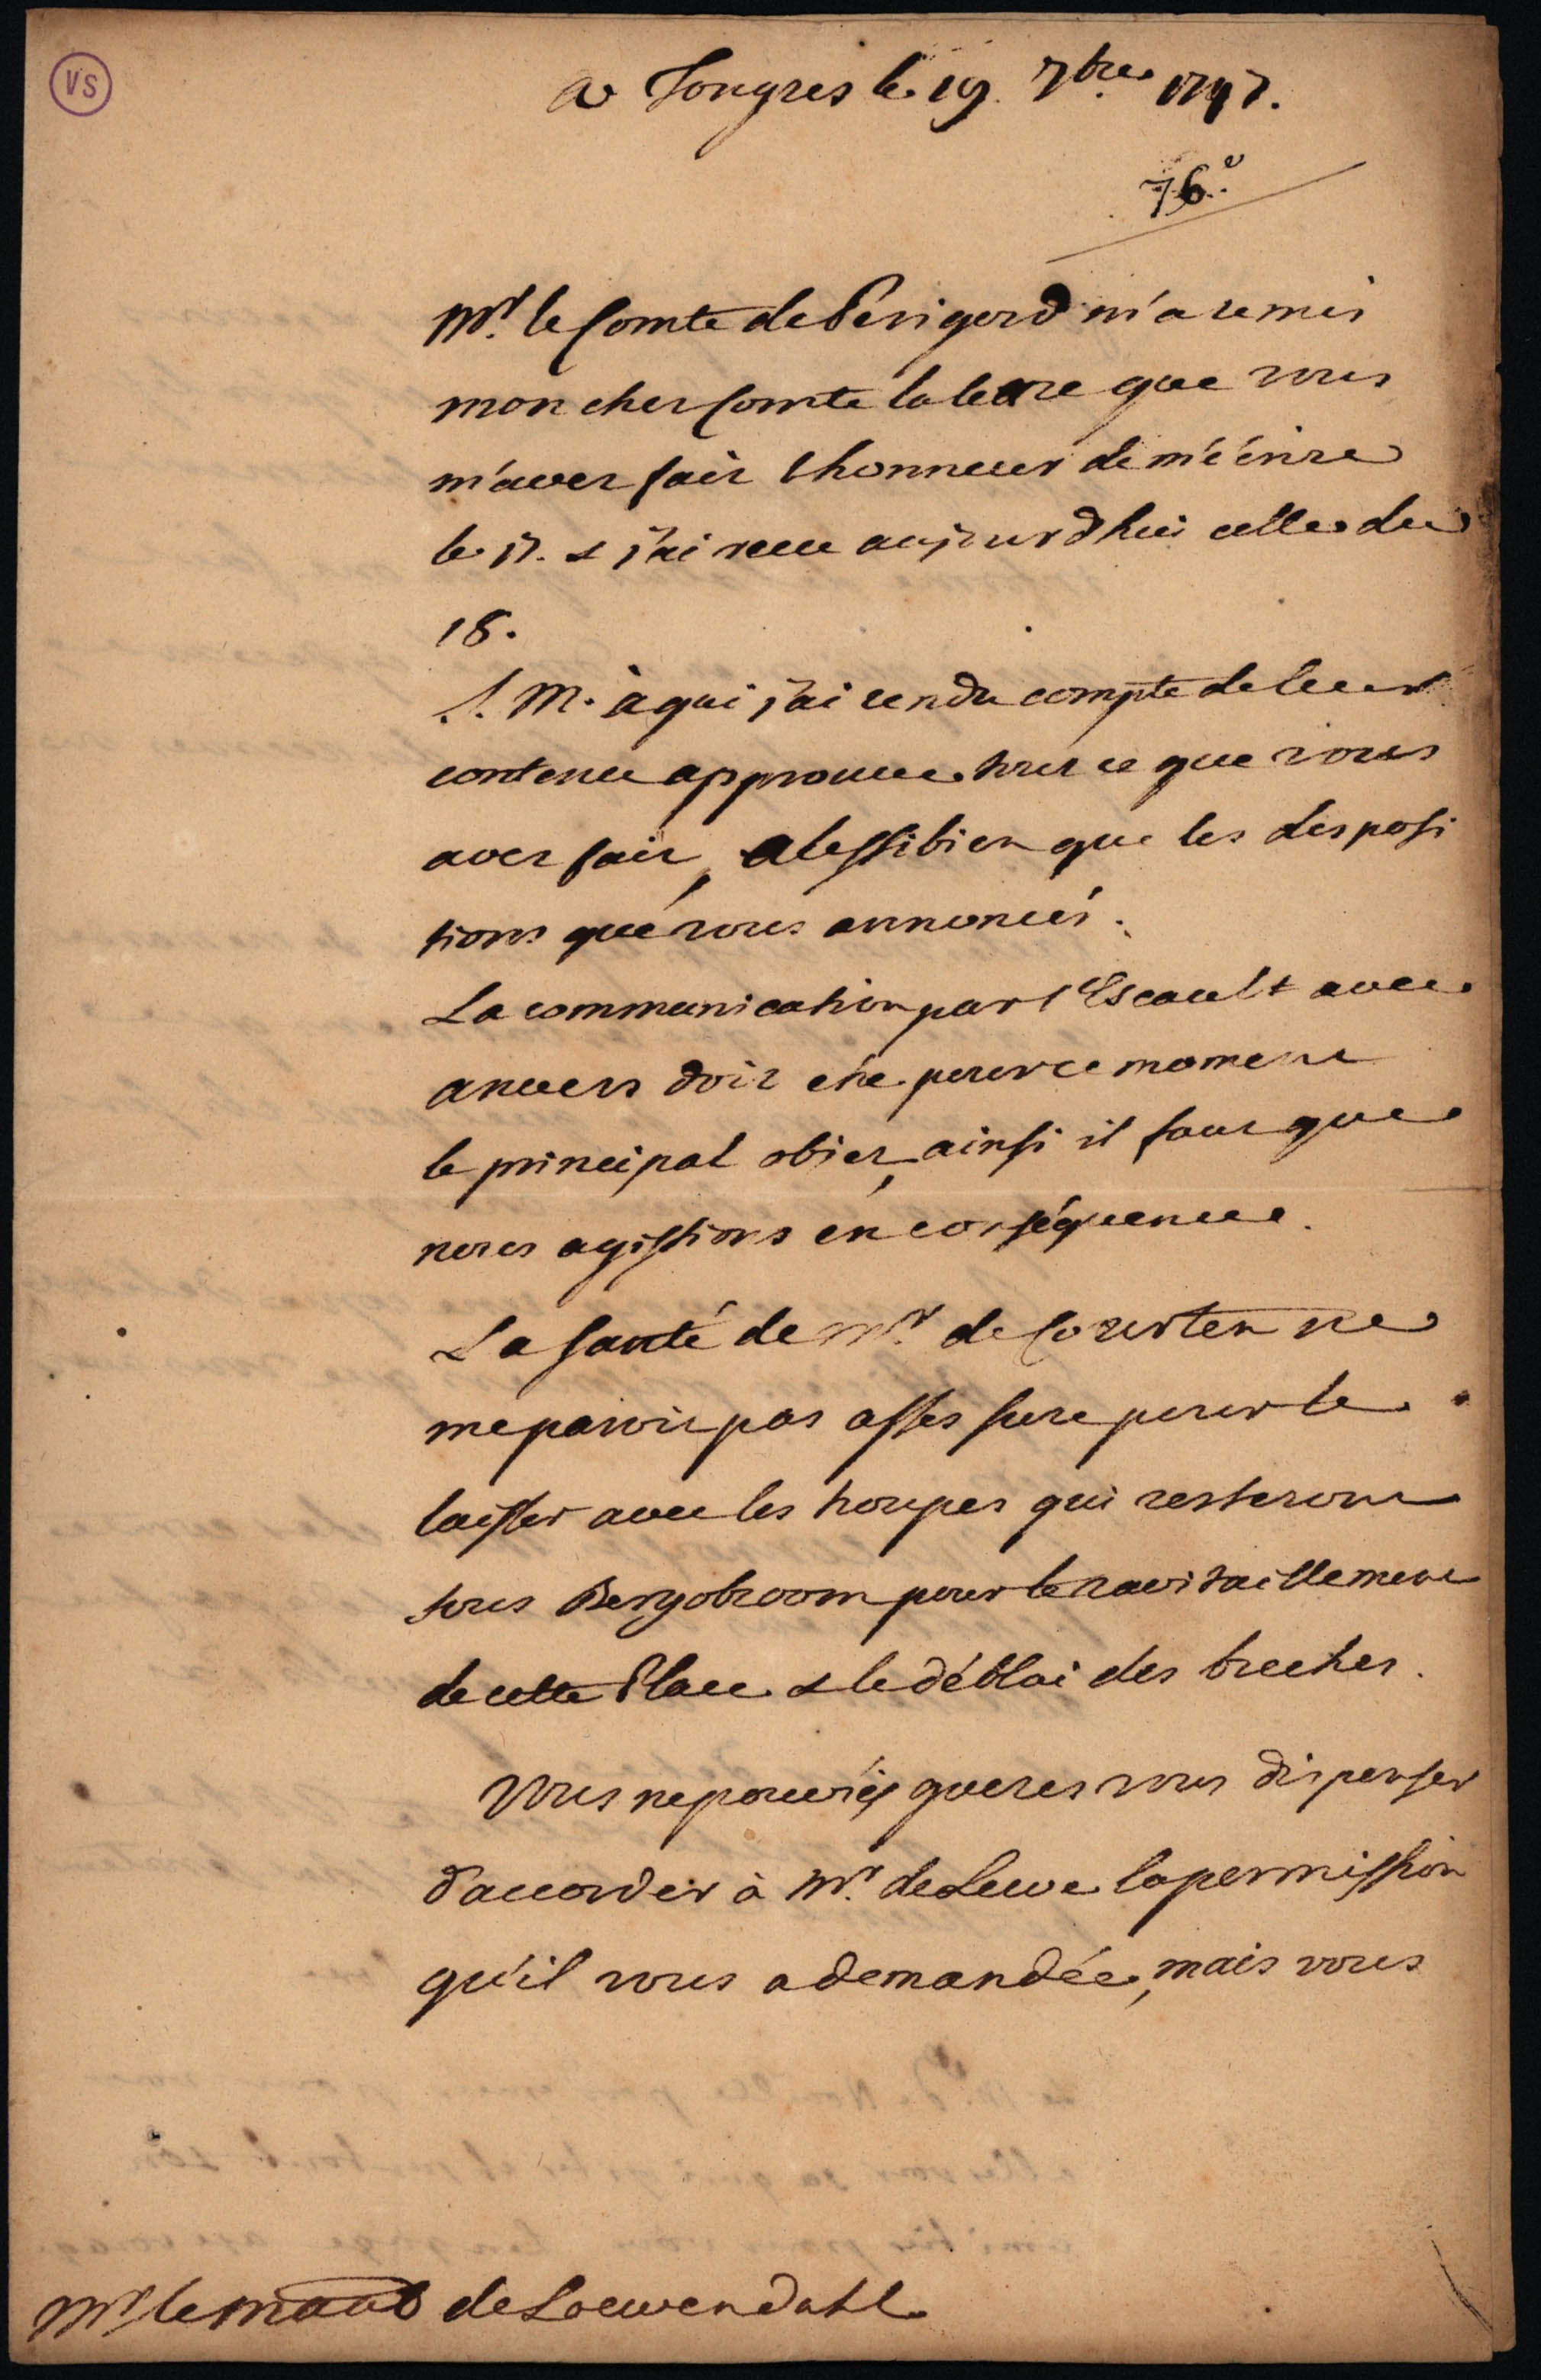 VS
a Tongres le 19. 7bre 1747.
76.e
Mr. le Comte de Périgord m'a remis
mon cher Comte la lettre que vous
m'avez fait l honneur de m'écrire
le 17. & j'ai receu aujourdhui celle du
18.
S. M. à qui j'ai rendu compte de leur
contenu approuve tout ce que vous
avez fait, aussi bien que les disposi
tions que vous annoncés.
La communication par l'Escault avec
anvers doit être pour ce moment
le principal objet, ainsi il faut que
nous agissions en conséquence.
La santé de Mr. de Courten ne
me paroit pas assés sure pour le
laisser avec les troupes qui resteront
sous Bergobzoom pour le ravitaillement
de cette Place & le déblai des breches.
Vous ne pouviés gueres vous dispenser
d'accorder à Mr. de Leuve la permission
qu'il vous a demandée, mais vous
Mr. le maal de Loewendahl